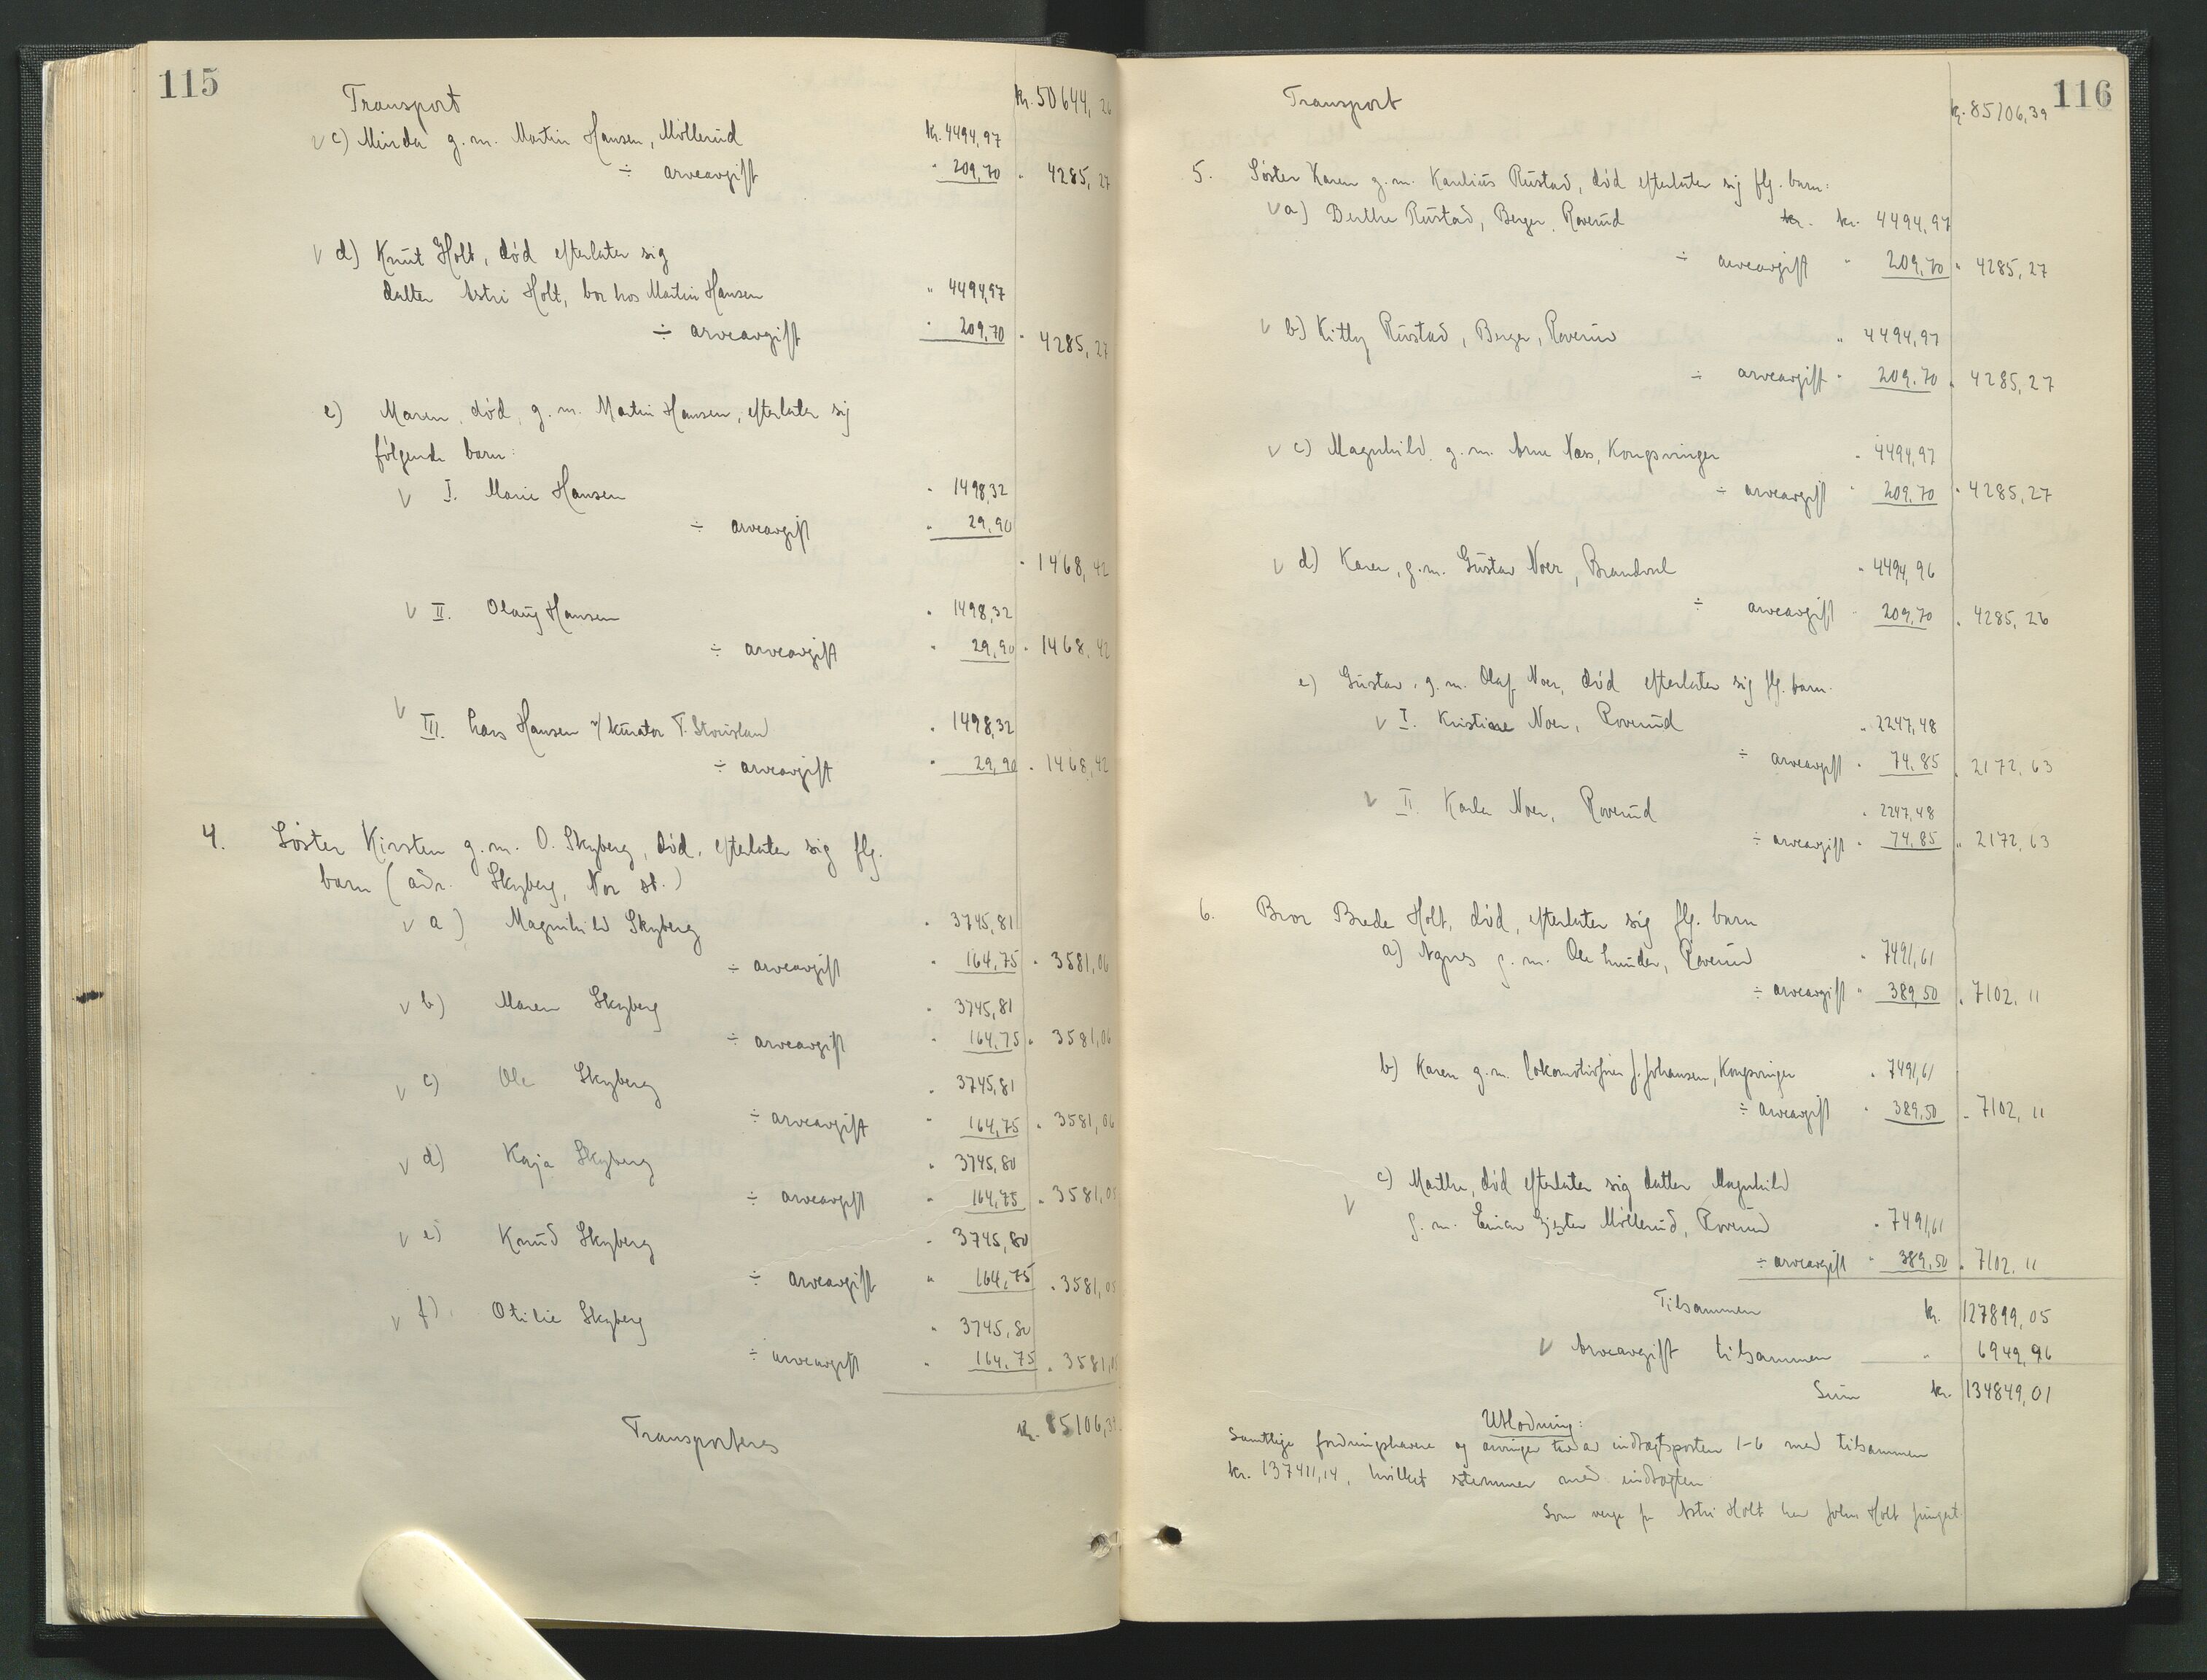 115
Transport kr. 50644, 26
c) Minda g. m. Martin Hansen, Møllerud kr. 4494,97
÷ arveavgift " 209,70 " 4285, 27
d) Knut Holt, død efterlater sig
datter Astri Holt, bor hos Martin Hansen " 4494,97
÷ arveavgift " 209,70 " 4285, 27
e) Maren, død, g. m. Martin Hansen, efterlater sig
følgende barn:
I. Marie Hansen " 1498,32
÷ arveavgift " 29,90
" 1468, 42
II. Olaug Hansen " 1498,32
÷ arveavgift " 29,90 " 1468, 42
III. Lars Hansen v/ kurator T. Storsland " 1498,32
÷ arveavgift " 29,90 " 1468,42
4. Søster Kirsten g. m. O. Skyberg, død, efterlater sig flg.
barn (adr. Skyberg, Nor st.)
a) Magnhild Skyberg " 3745,81
÷ arveavgift " 164,75 " 3581,06
b) Maren Skyberg " 3745,81
÷ arveavgift " 164,75 " 3581,06
c) Ole Skyberg " 3745,81
÷ arveavgift " 164,75 " 3581,06
d) Kaja Skyberg " 3745,80
÷ arveavgift " 164,75 " 3581,05
e) Knud Skyberg " 3745,80
÷ arveavgift " 164,75 " 3581,05
f) Otilie Skyberg " 3745,80
÷ arveavgift " 164,75 " 3581,05
Transporteres kr. 85106,39
116
Transport kr. 85106,39
5. Søster Karen g. m. Karelius Rustad, død efterlater sig flg. barn:
a) Berthe Rustad, Berger, Roverud kr. kr. 4494,97
÷ arveavgift " 209,70 " 4285,27
b) Kitty Rustad, Berger, Roverud " 4494,97
÷ arveavgift " 209,70 " 4285,27
c) Magnhild g. m. Arne Næs, Kongsvinger " 4494,97
÷ arveavgift " 209,70 " 4285,27
d) Karen, g. m. Gustav Noer, Brandval " 4494,96
÷ arveavgift " 209,70 " 4285,26
e) Gustav, g. m. Olaf Noer, død efterlater sig flg. barn.
I. Kristiane Noer, Roverud " 2247,48
÷ arveavgift " 74,85 " 2172,63
II. Karla Noer, Roverud " 2247,48
÷ arveavgift " 74,85 " 2172,63
6. Bror Brede Holt, død, efterlater sig flg. barn
a) Agnes g. m. Ole Lunder, Roverud " 7491,61
÷ arveavgift " 389,50 " 7102,11
b) Karen g. m. lokomotivfører J. Johansen, Kongsvinger " 7491,61
÷ arveavgift " 389,50 " 7102,11
c) Marthe, død efterlater sig datter Magnhild
g. m. Einar Møllerud, Roverud " 7491,61
÷ arveavgift " 389,50 " 7102,11
Tilsammen kr. 127899,05
Arveavgift tilsammen " 6949,96
Sum kr. 134849,01
Utlodning:
Samtlige fordringshavere og arvinger indtægtsposten 1-6 med tilsammen
kr. 137411,14, hvilket stemmer med indtægten
Som verge for Astri Holt har Johs Holt fungert